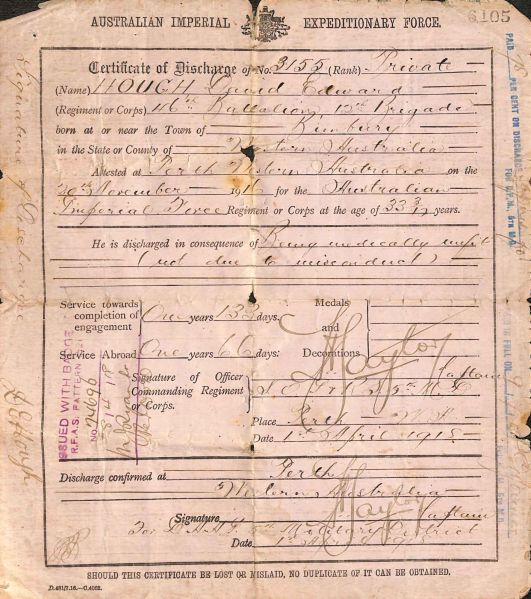 6105
AUSTRALIAN IMPERIAL EXPEDITIONARY FORCE.
Certificate of Discharge of No. 3155 (Rank) Private
(Name) HOUGH David Edward
(Regiment or Corps) 46th Battalion, 12th Brigade
born at or near the Town of Bunbury
in the State or County of Western Australia
Attested at Perth Western Australia on the
20th November 1916 for the Australian
Imperial Force Regiment or Corps at the age of 33 3/12 years.
He is discharged in consequence of Being medically unfit
(not due to misconduct)
Service towards completion of engagement One years 133 days.
Service Abroad One years 66 days.
Medals and Decorations
Signature of Officer Commanding Regiment or Corps.
Place Perth W.A.
Date 1st April 1918
Discharge confirmed at Perth
Western Australia
(Signature
For 5th Military District
Date 1st April 1918
SHOULD THIS CERTIFICATE BE LOST OR MISLAID, NO DUPLICATE OF IT CAN BE OBTAINED.
D.481/7.16.—C.4062.
ISSUED WITH BADGE
R.F.A.S. PATTERN
NO. 24096
Signature of Discharge
D E Hough
PAID PER CENT ON DISCHARGE